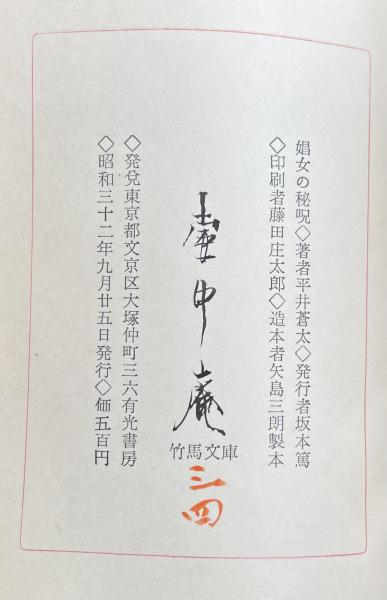 娼女の秘呪◇著者平井蒼太◇発行者坂本篤
◇印刷者藤田庄太郎◇造本者矢島三朗製本
壺中庵
竹馬文庫
三四
◇発兌東京都文京区大塚仲町三六有光書房
◇昭和三十二年九月廿五日発行◇価五百円